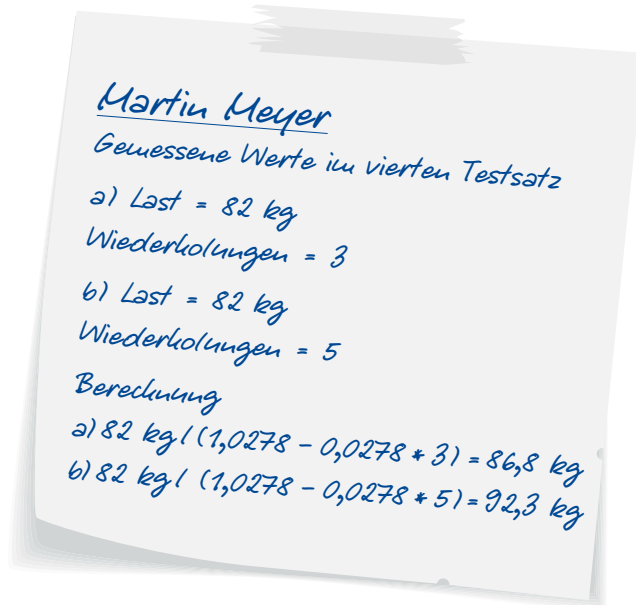 Martin Meyer
Gemessene Werte im vierten Testsatz
a) Last = 82 kg
Wiederholungen = 3
b) Last = 82 kg
Wiederholungen = 5
Berechnung
a) 82 kg / (1,0278 – 0,0278 * 3) = 86,8 kg
b) 82 kg / (1,0278 – 0,0278 * 5) = 92,3 kg